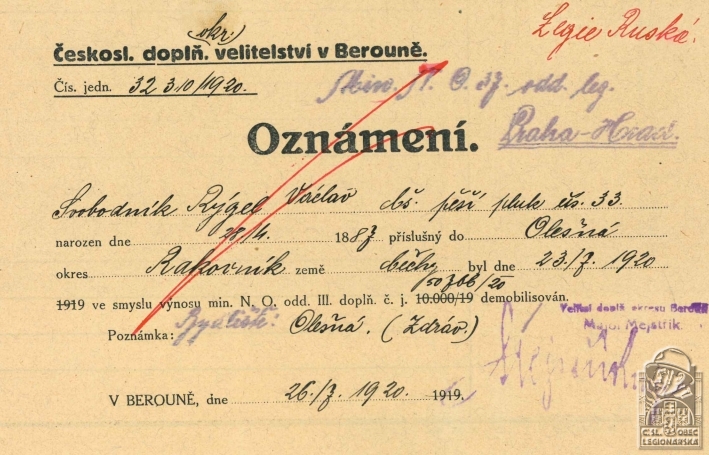 Legie Ruská.
okr.
Českosl. doplň. velitelství v Berouně.
Čís. jedn. 32310/1920.
Min. N. O. 37 odd. leg.
Praha-Hrad.
Oznámení.
Svobodník Rýgel Václav čs. pěší pluk čís. 33.
narozen dne 28/4. 1887 příslušný do Olešná
okres Rakovník země Čechy byl dne 23/7. 1920
50766/20
1919 ve smyslu výnosu min. N. O. odd. III. doplň. č. j. 10.000/19 demobilisován.
Poznámka: Bydliště: Olešná. (Zdráv.)
Velitel doplň. okresu Beroun
Major Mejstřík.
V BEROUNĚ, dne 26./7. 1920. 1919.
ČSL. OBEC
LEGIONÁŘSKÁ